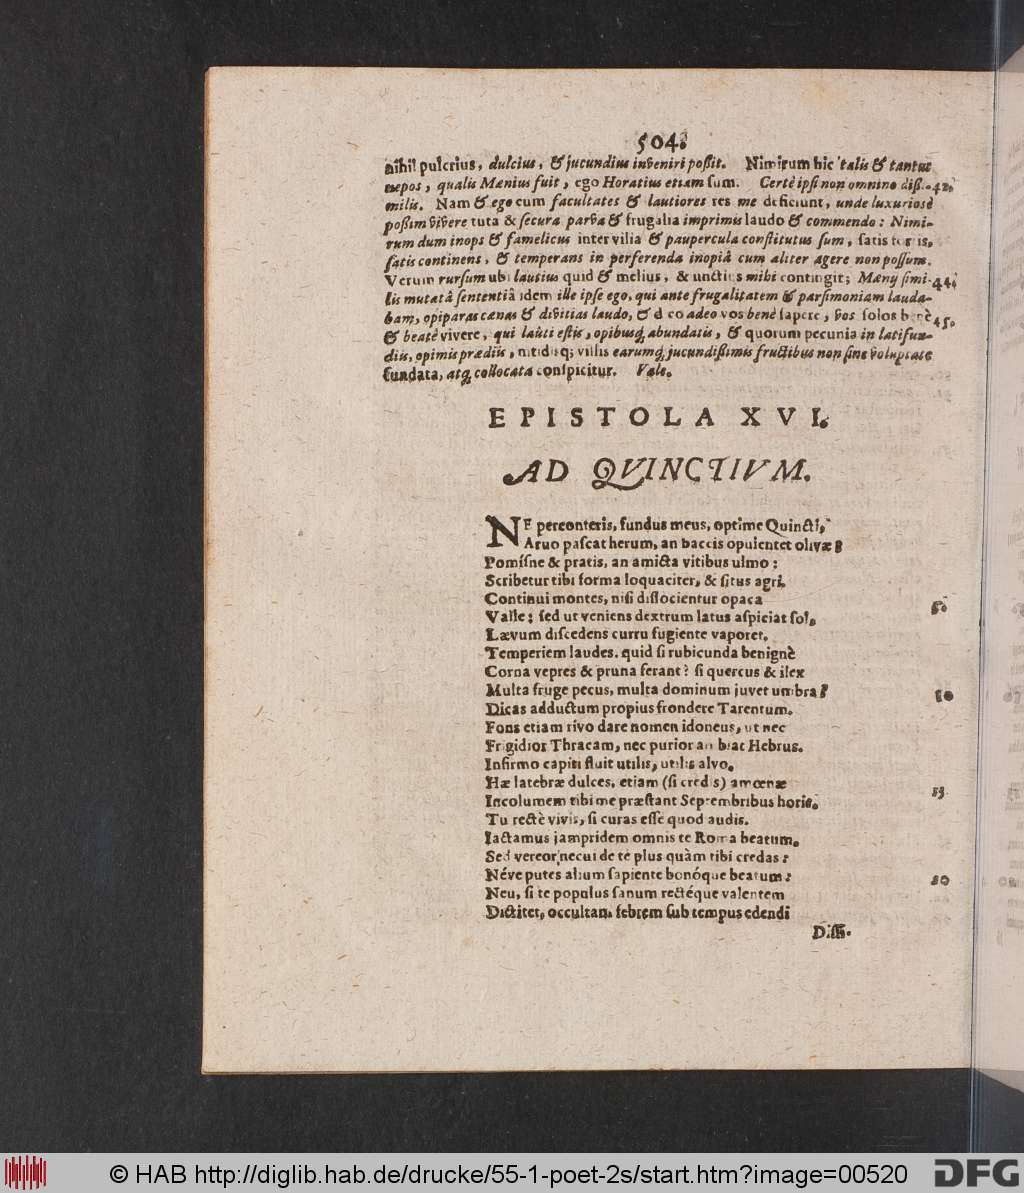 504.
nihil pulcrius, dulcius, & jucundius inveniri poßit. Nimirum hic talis & tantus
nepos, qualis Mænius fuit, ego Horatius etiam sum. Certè ipsi non omnino dißi- 42.
milis. Nam & ego cum facultates & lautiores res me deficiunt, unde luxuriosè
poßim vivere tuta & secura parva & frugalia imprimis laudo & commendo: Nimi-
rum dum inops & famelicus inter vilia & paupercula constitutus sum, satis fortis,
satis continens, & temperans in perferenda inopiâ cum aliter agere non possum.
Verum rursum ubi lautius quid & melius, & unctius mihi contingit; Mænij simi- 44.
lis mutatâ sententiâ idem ille ipse ego, qui ante frugalitatem & parsimoniam lauda-
bam, opiparas cænas & divitias laudo, & dico adeo vos benè sapere, vos solos benè 45.
& beatè vivere, qui lauti estis, opibusq́ abundatis, & quorum pecunia in latifun-
diis, opimis prædiis, nitidisq; villis earumq́ jucundißimis fructibus non sine voluptate
fundata, atq́ collocata conspicitur. Vale.
EPISTOLA XVI.
AD QVINCTIVM.
NE perconteris, fundus meus, optime Quincti,
Arvo pascat herum, an baccis opulentet olivæ?
Pomisne & pratis, an amicta vitibus ulmo:
Scribetur tibi forma loquaciter, & situs agri.
Continui montes, nisi dissocientur opaca
Valle; sed ut veniens dextrum latus aspiciat sol, 5.
Lævum discedens curru fugiente vaporet.
Temperiem laudes. quid si rubicunda benignè
Corna vepres & pruna ferant? si quercus & ilex
Multa fruge pecus, multa dominum juvet umbra? 10
Dicas adductum propius frondere Tarentum.
Fons etiam rivo dare nomen idoneus, ut nec
Frigidior Thracam, nec purior ambiat Hebrus.
Infirmo capiti fluit utilis, utilis alvo.
Hæ latebræ dulces, etiam (si credis) amœnæ
Incolumem tibi me præstant Septembribus horis. 15
Tu rectè vivis, si curas esse quod audis.
Iactamus jampridem omnis te Roma beatum.
Sed vereor necui de te plus quàm tibi credas:
Néve putes alium sapiente bonóque beatum:
Neu, si te populus sanum rectéque valentem 20
Dictitet, occultam febrem sub tempus edendi
Diss.
© HAB http://diglib.hab.de/drucke/55-1-poet-2s/start.htm?image=00520
DFG